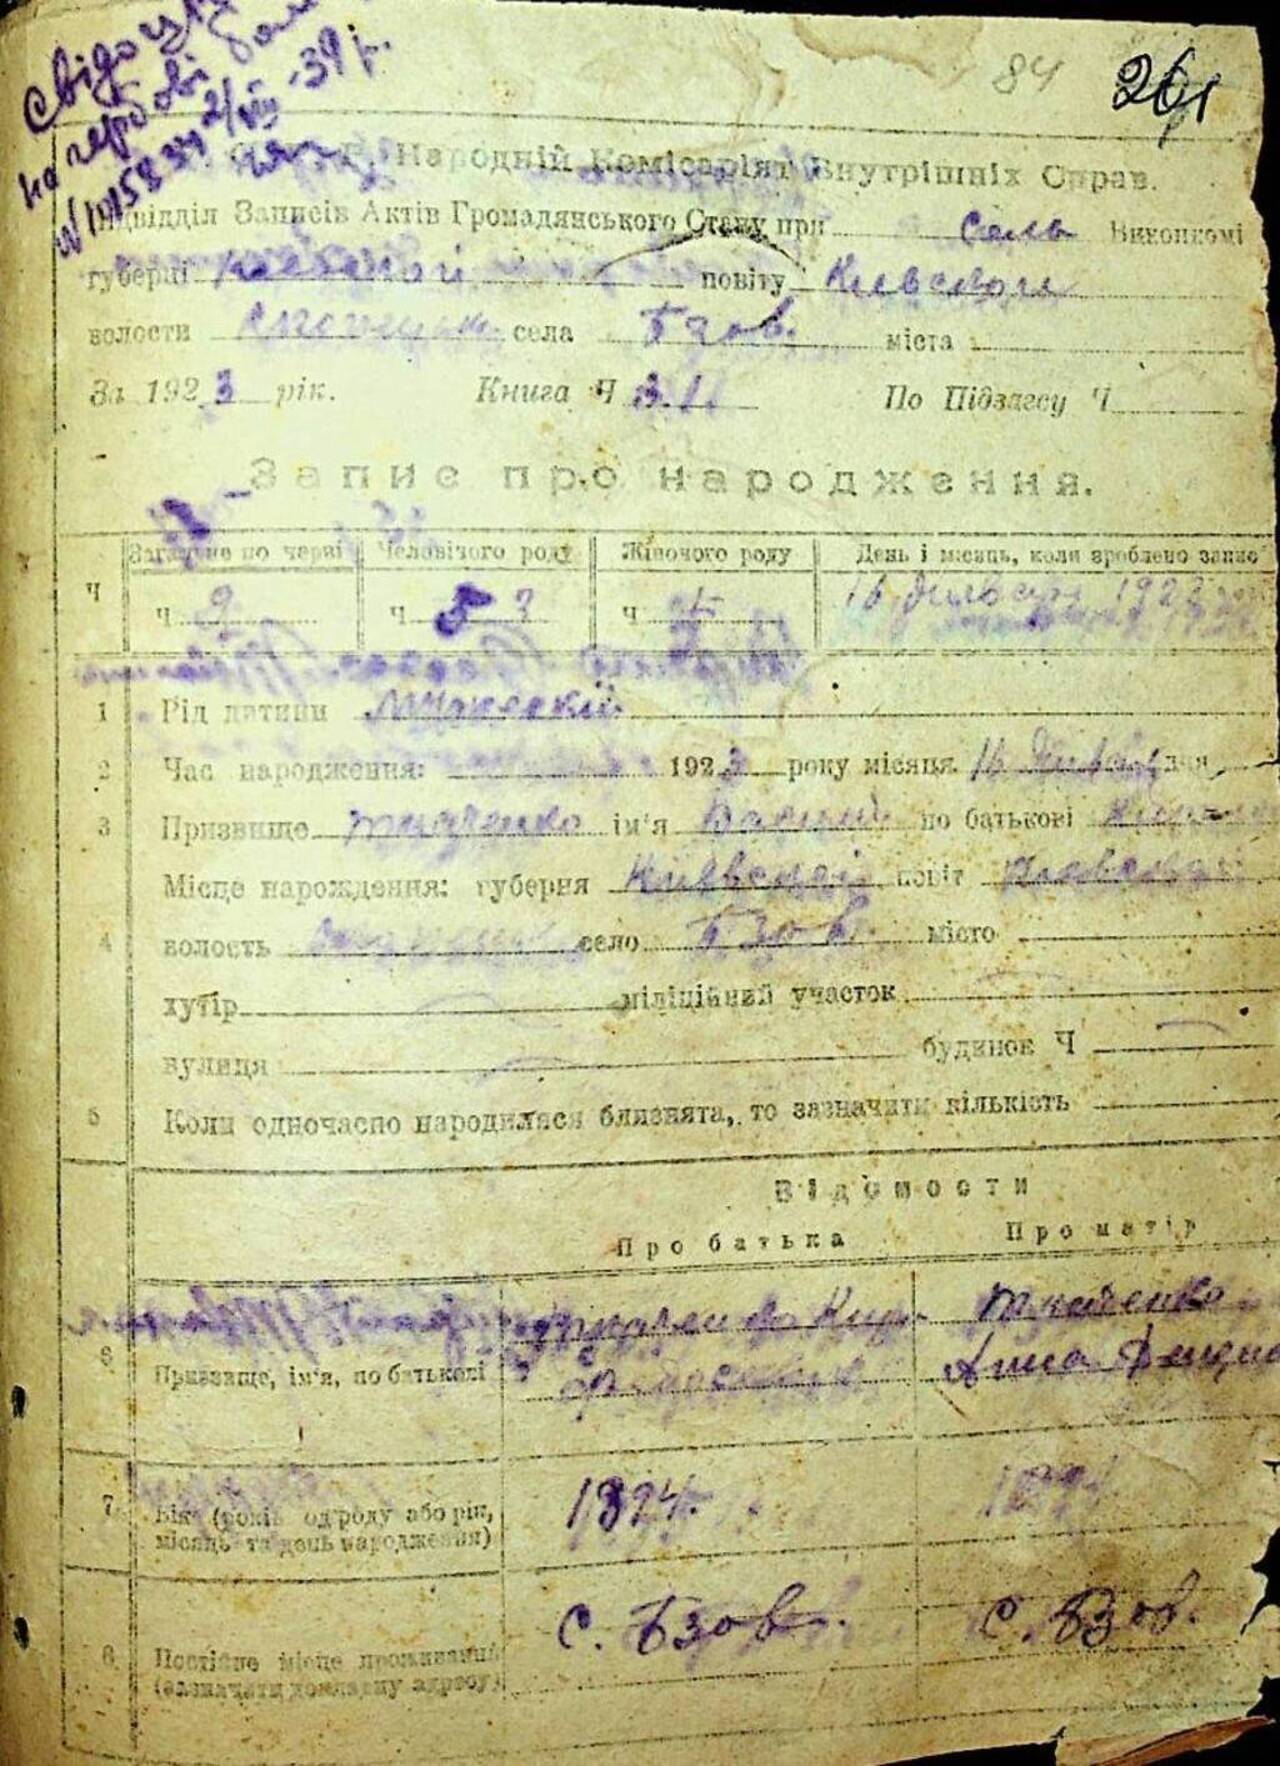 84 26
на -39 р.
Народній Комісаріят Внутрішніх Справ.
Підвідділ Записів Актів Громадянського Стану при Сель Виконкомі
губерні Киевской повіту Киевской
волости села Бзов. міста
За 1923 рік. Книга Ч По Підзагсу Ч
Запис про народження.
Загальне по черві Человічого роду Жіночого роду День і місяць, коли зроблено запис
Ч Ч 9 Ч 3 Ч 16 Января 1923
1 Рід дитини Мужеский
2 Час народження: 1923 року місяця 16 Января дня
3 Призвище Ткаченко ім'я Василий по батькові
Місце нарождення: губерня Киевской повіт Киевской
4 волость село Бзов. місто
хутір міліційний участок
вулиця будинок Ч
5 Коли одночасно народилися близнята, то зазначити кількість
Відомости
Про батька Про матір
Ткаченко Кир. Ткаченко
6 Призвище, ім'я, по батькові Анна
7 Вік (років од роду або рік, 1894.
місяць та день народження)
с. Бзов. с. Бзов.
8 Постійне місце проживання
(зазначати докладну адресу)